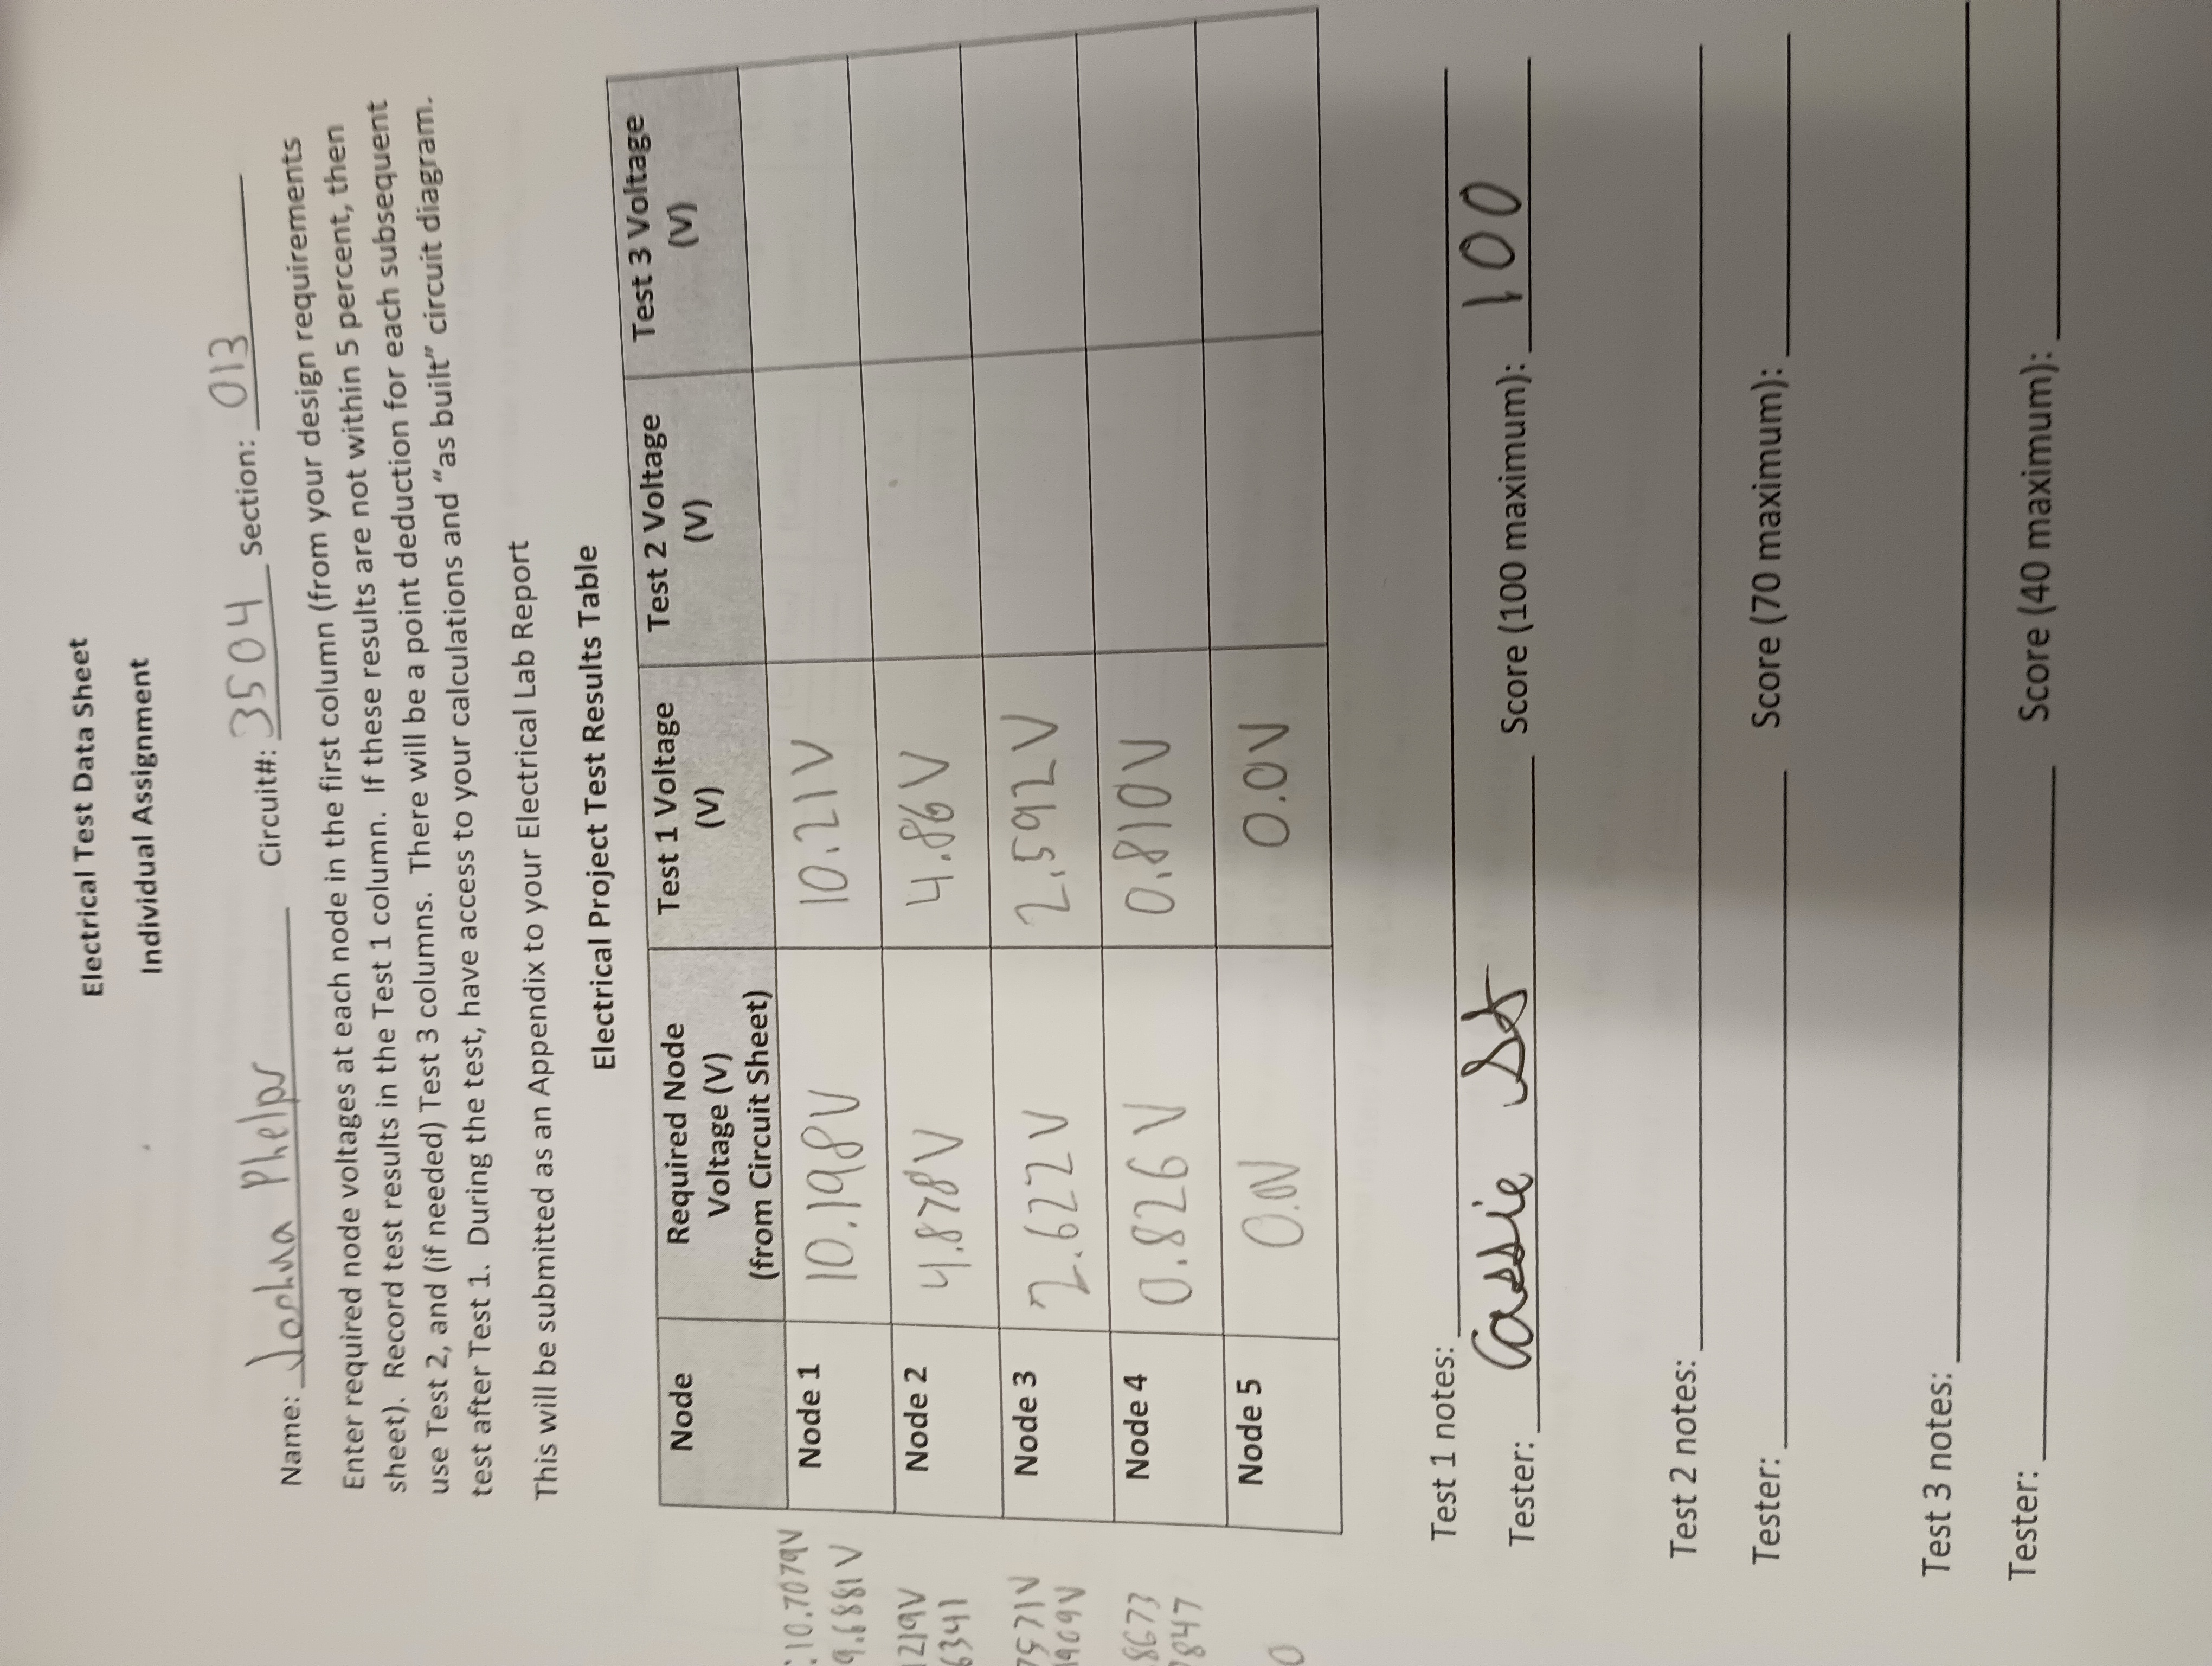 Electrical Test Data Sheet
Individual Assignment
Name: Joshua Phelps Circuit#: 3504 Section: 013
Enter required node voltages at each node in the first column (from your design requirements
sheet). Record test results in the Test 1 column. If these results are not within 5 percent, then
use Test 2, and (if needed) Test 3 columns. There will be a point deduction for each subsequent
test after Test 1. During the test, have access to your calculations and “as built” circuit diagram.
This will be submitted as an Appendix to your Electrical Lab Report
Electrical Project Test Results Table
Node Required Node Voltage (V) (from Circuit Sheet) Test 1 Voltage (V) Test 2 Voltage (V) Test 3 Voltage (V)
:10.7079V
9.6881V
Node 1 10.198V 10.21V
1219V
6341
Node 2 4.878V 4.86V
7531V
1909V
Node 3 2.622V 2.592V
.8673
7847
Node 4 0.826V 0.810V
0
Node 5 0.0V 0.0V
Test 1 notes:
Tester: Cassie Score (100 maximum): 100
Test 2 notes:
Tester: Score (70 maximum):
Test 3 notes:
Tester: Score (40 maximum):